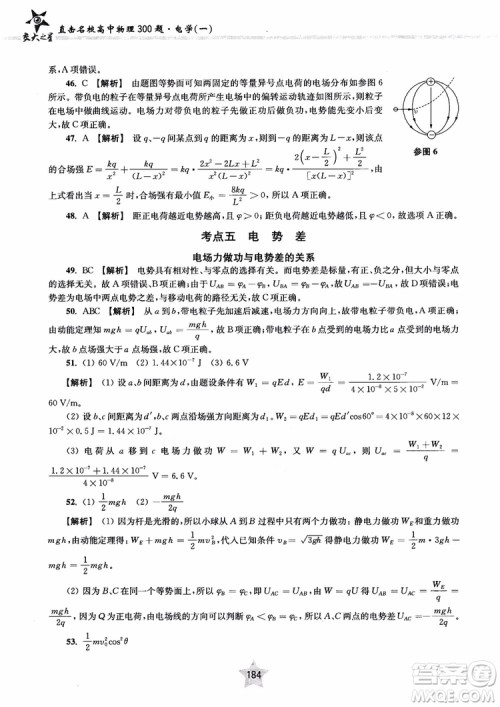 交大之星
直击名校高中物理300题·电学(一)
系，A项错误。
46. C 【解析】 由题图等势面可知两固定的等量异号点电荷的电场分布如参图6
所示。带负电的粒子在等量异号点电荷所产生电场中的偏转运动轨迹如图所示，则粒
子在电场中做曲线运动。电场力对带负电的粒子先做正功后做负功，电势能先变小后
变大，故C正确。
47. A 【解析】 设q、-q间某点到q的距离为x，则到-q的距离为L-x，则该点
的合场强E=kq/x²+kq/(L-x)²=kq·(2x²-2Lx+L²)/[x²(L-x)²]=kq·(2(x-L/2)²+L²/2)/[x(L-x)]²，由
上式看出当x=L/2时合场强有最小值E_min=8kq/L²>0，所以A项正确，B、C、D项错误。
48. A 【解析】 距正电荷越近电势越高，距负电荷越近电势越低，A项正确。
参图6
考点五 电势差
电场力做功与电势差的关系
49. BC 【解析】 电势具有相对性，与零点的选择有关。而电势能是标量，有正、负之分，但无方向。
电场中两点间的电势差与零电势点的选择无关，只与两点的位置有关，与移动电荷的路径无关，与移动电
荷的路径无关，故选B、C。
50. ABC 【解析】 从a到b，带负电粒子先加速后减速，电场力方向向上，电场方向竖直向下。
由动能定理知mgh=qU_ab，U_ab=mgh/q，故B项正确。带负电粒子在b点受到的电场力比a点受到的电场
力大，故b点场强大于a点场强，故C项正确。
51. (1) 60 V/m (2) 1.44×10⁻⁷ J (3) 6.6 V
【解析】 (1) 设a、b间距离为d，由题设条件有W₁=qU_ab=qEd。E=W₁/(qd)=1.2×10⁻⁷/(4×10⁻⁸×5×10⁻²) V/m=
60 V/m。
(2) 设b、c间距离为d′，b、c两点沿场强方向距离为d₁。W₂=qU_bc=qEd₁=qEd′cos60°=1.44×10⁻⁷ J。
(3) 电荷从a移到c电场力做功W=W₁+W₂，又W=qU_ac，则U_ac=(W₁+W₂)/q=
(1.2×10⁻⁷+1.44×10⁻⁷)/(4×10⁻⁸) V=6.6 V。
52. (1) ½mgh (2) -mgh/2q
【解析】 (1) 因为杆是光滑的，所以小球从A到B过程中只有两个力做功：静电力做功W_E和重力做功
mgh，由动能定理得：W_E+mgh=½mv_B²，代入已知条件v_B=√3gh得静电力做功W_E=½m·3gh-mgh=
½mgh。
(2) 因为B、C在同一个等势面上，所以φ_B=φ_C，由电场线分布可知φ_A<φ_B=φ_C，所以U_AC=-W_E/q=
-mgh/2q。故U_AB=U_AC，因为φ_B=φ_C，所以A、C两点的电势差大小为mgh/2q。
53. ½mv₀²cos²θ
184
答案圈
MXQE.COM